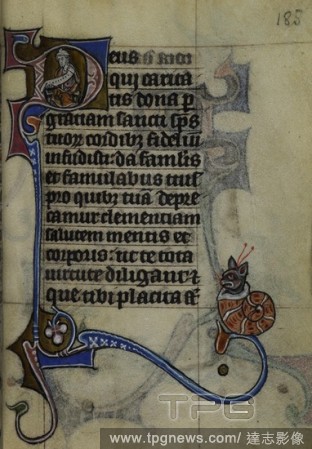 185
Deus q̄ nobi
qui carita
tis dona p̄
gratiam sancti sp̄s
tuoꝝ cordibꝫ fideliū
infudisti: da famulis
et famulabus tuis
pro quibꝫ tuā depre
camur clementiam
salutem mentis et
corporis: ut te tota
uirtute diligant ⁊
que tibi placita sūt
TPG
www.tpgnews.com/ 達志影像